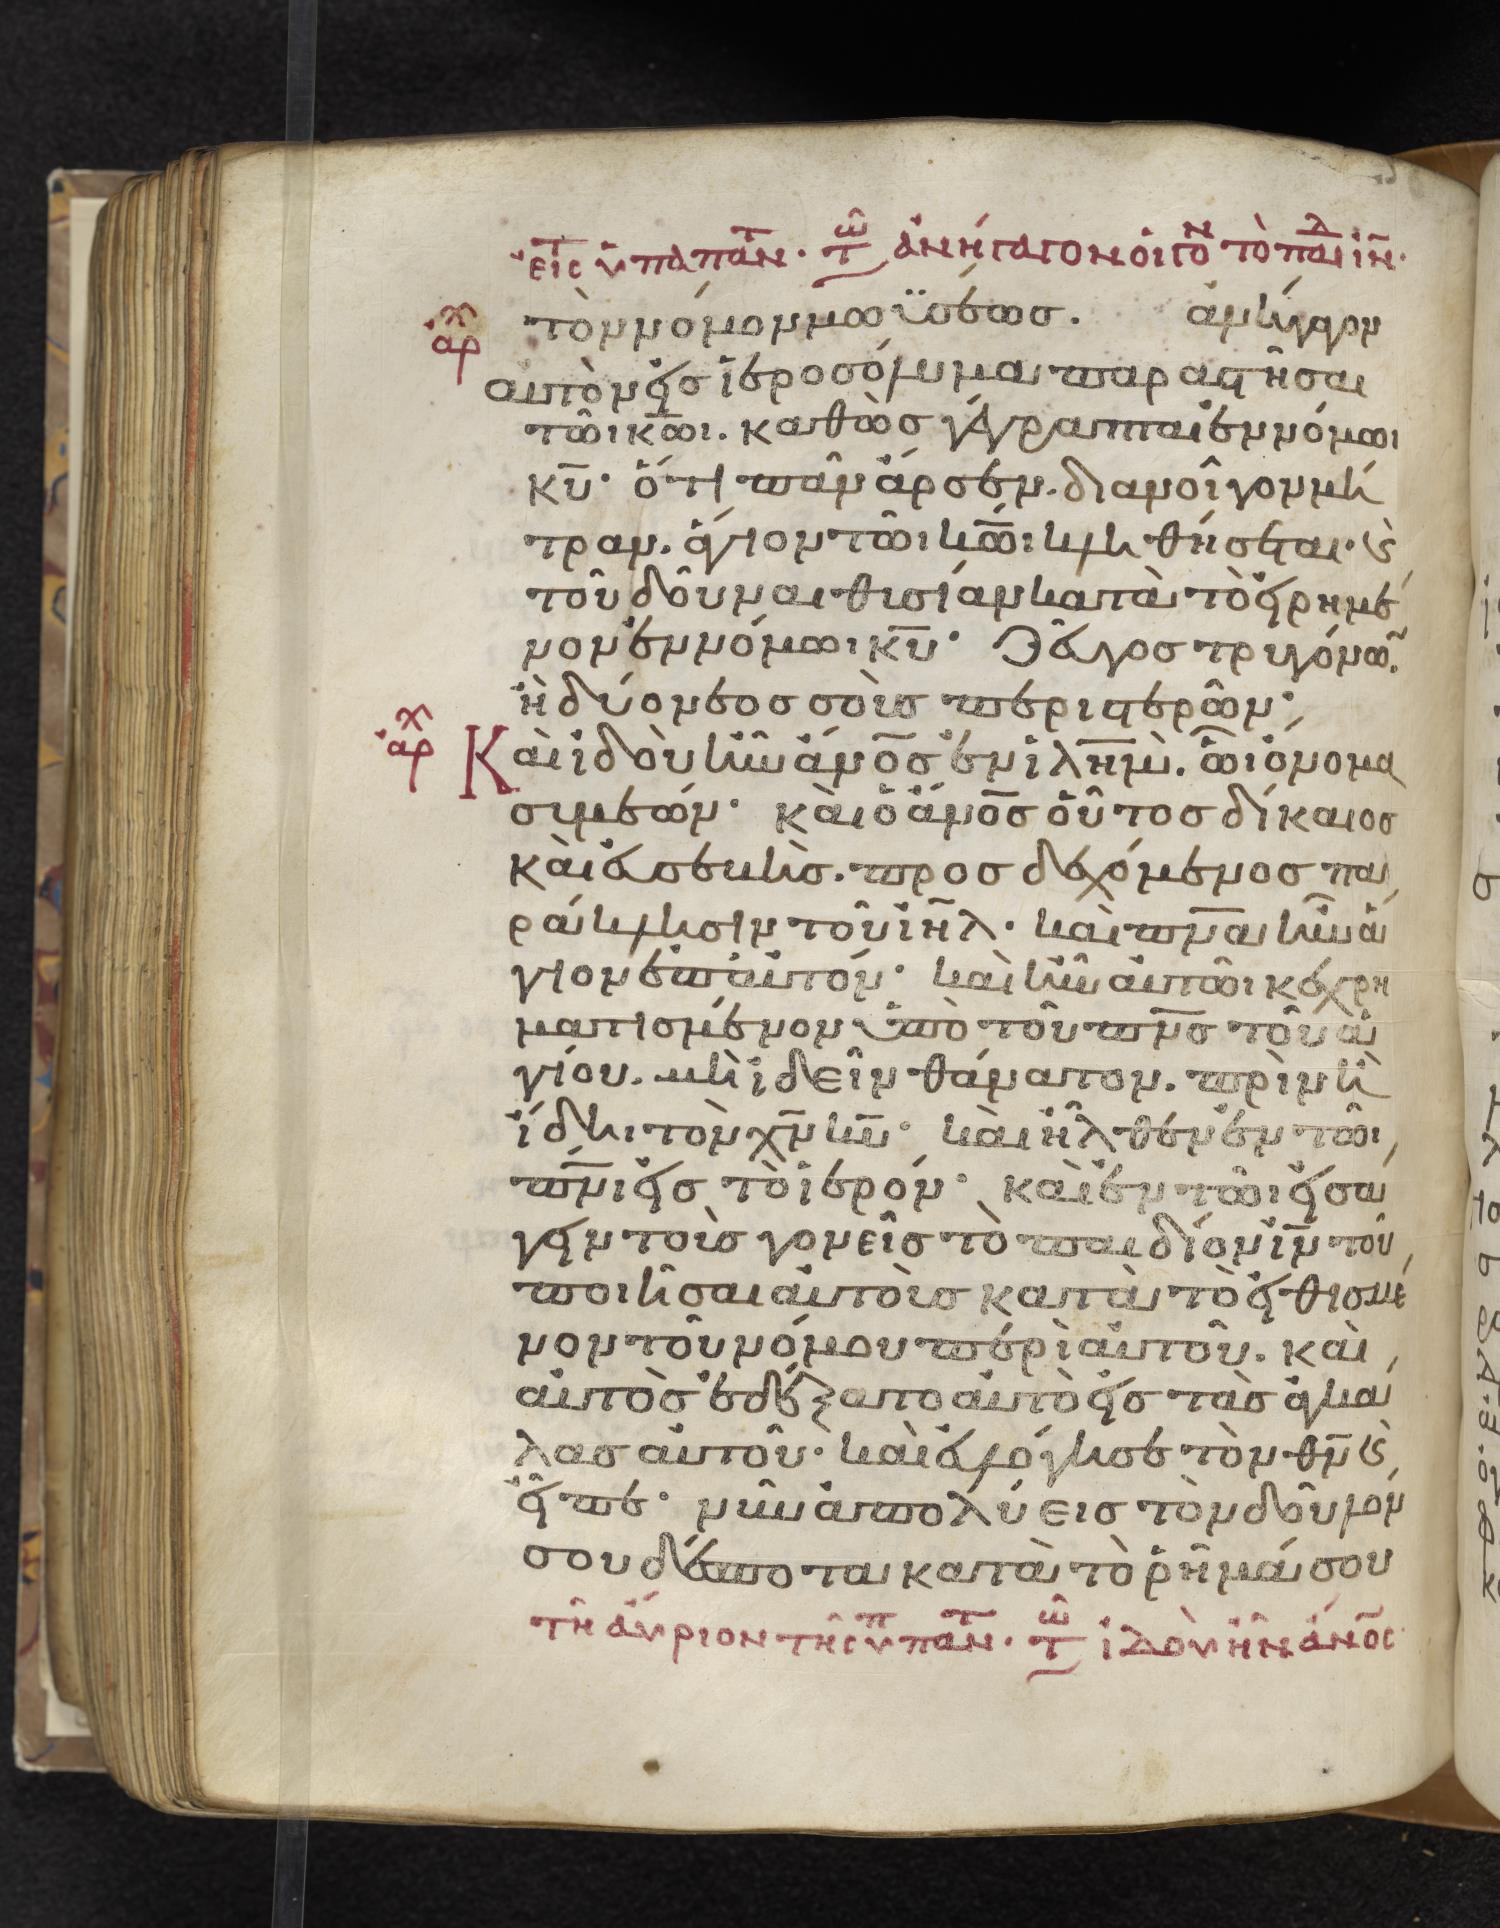 εἰς ὑπαπαν τ· τῶ ἀνήγαγον οἱ γον τὸ παιδ ἰν·
αρχ
τὸν νόμον μωϋσέως. ἀνήγαγον
αὐτὸν εἰς ἱεροσόλυμα παραστῆσαι
τῶι κ̅ωι. καθὼς γέγραπται ἐν νόμωι
κ̅υ· ὅτι πᾶν ἄρσεν διανοῖγον μή
τραν. ἅγιον τῶι κ̅ωι κληθήσεται· ϗ
τοῦ δοῦναι θυσίαν κατὰ τὸ εἰρημέ
νον ἐν νόμωι κ̅υ· ζεῦγος τρυγόνων.
ἢ δύο νεοσσοὺς περιστερῶν·
αρχ
Καὶ ἰδοὺ ἦν ἄν̅ος ἐν ἰλ̅ημ. ὧι ὄνομα
συμεών· καὶ ὁ ἄν̅ος οὗτος δίκαιος
καὶ εὐσεβὴς. προσδεχόμενος πα
ράκλησιν τοῦ ἰη̅λ· καὶ πν̅α ἦν ἅ
γιον ἐπαὐτόν· καὶ ἦν αὐτῶι κεχρη
ματισμένον ὑπὸ τοῦ πν̅ς τοῦ ἁ
γίου. μὴ ἰδεῖν θάνατον. πρὶν ἢ
ἴδηι τὸν χ̅ν κ̅υ· καὶ ἦλθεν ἐν τῶι
πν̅ι εἰς τὸ ἱερόν· καὶ ἐν τῶι εἰσα
γεῖν τοὺς γονεῖς τὸ παιδίον ἰ̅ν τοῦ
ποιῆσαι αὐτοὺς κατὰ τὸ εἰθισμέ
νον τοῦ νόμου περὶ αὐτοῦ. καὶ
αὐτὸς ἐδέξατο αὐτὸ εἰς τὰς ἀγκά
λας αὐτοῦ· καὶ εὐλόγησε τὸν θ̅ν ϗ
εἶπε· νῦν ἀπολύεις τὸν δοῦλον
σου δέσποτα κατὰ τὸ ῥῆμά σου
τῆ ἀύριον τῆς ὑπαπαντ· τῶ ἰδοὺ ἦν ἄν̅ος·